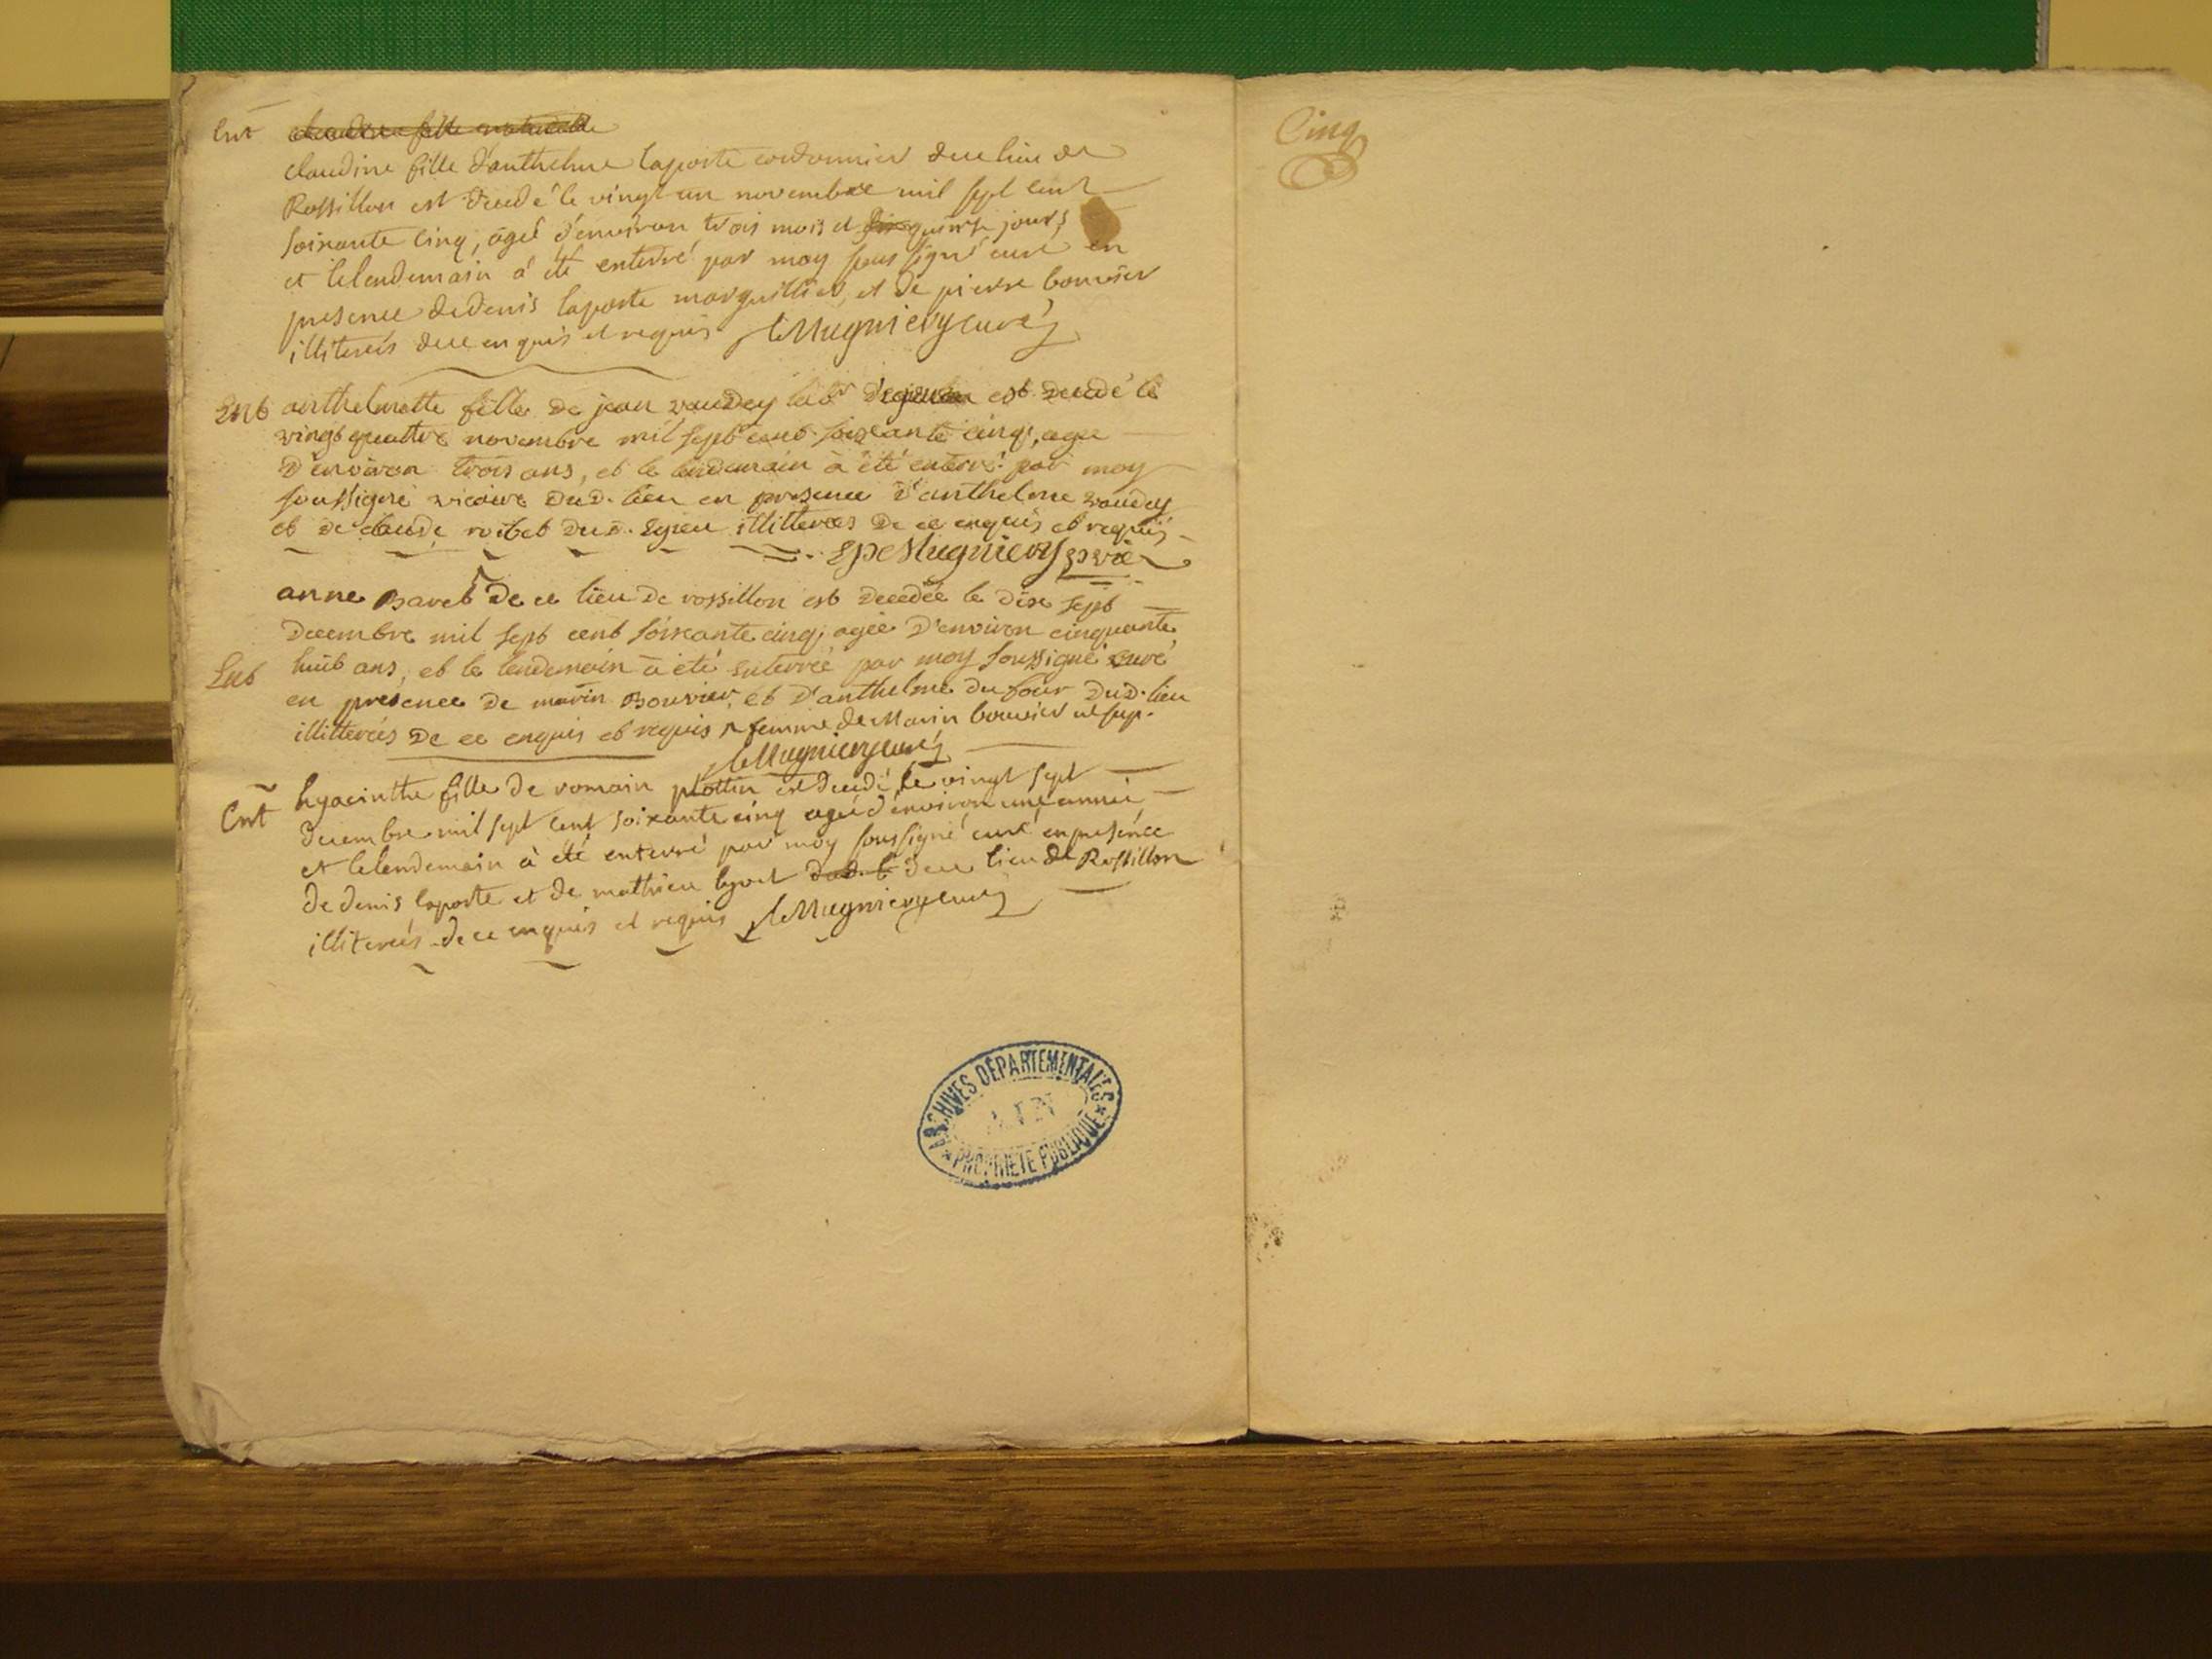 Ent
claudine fille d'anthelme laporte cordonnier de ce lieu de
Rossillon est decedé le vingt un novembre mil sept cent
soixante cinq, agé d'environ trois mois et quinze jours
et le lendemain à été enterré par moy sous signé curé en
presence de denis laporte marguillier, et de pierre bouvier
illiterés de ce enquis et requis Mugniery curé
Ent anthelmette fille de jean vaudey labr d'egieu est decedé le
vingt quattre novembre mil sept cent soixante cinq, agée
d'environ trois ans, et le lendemain à été enterré par moy
soussigné vicaire dud. lieu en presence d'anthelme vaudey
et de claude dud. Egieu illitterés de ce enquis et requis
Mugniery
anne Baret de ce lieu de rossillon est decedée le dix sept
decembre mil sept cent soixante cinq, agée d'environ cinquante
Ent huit ans, et le lendemain à été enterrée par moy soussigné curé
en presence de marin Bouvier, et d'anthelme du four dud. lieu
illitterés de ce enquis et requis femme de Marin bouvier
Mugniery curé
Ent hyacinthe fille de romain plottin est decedé le vingt sept
decembre mil sept cent soixante cinq agé d'environ une année
et le lendemain à été enterré par moy sous signé curé en presence
de denis laporte et de mathieu de ce lieu de Rossillon
illiterés de ce enquis et requis Mugniery curé
ARCHIVES DÉPARTEMENTALES
AIN
PROPRIÉTÉ PUBLIQUE
Cinq